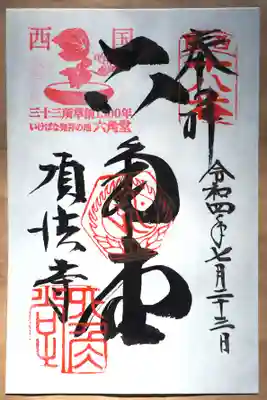 奉拝
令和四年七月二十三日
西国
三十三所草創1300年
いけばな発祥の地 六角堂
六角堂
頂法寺